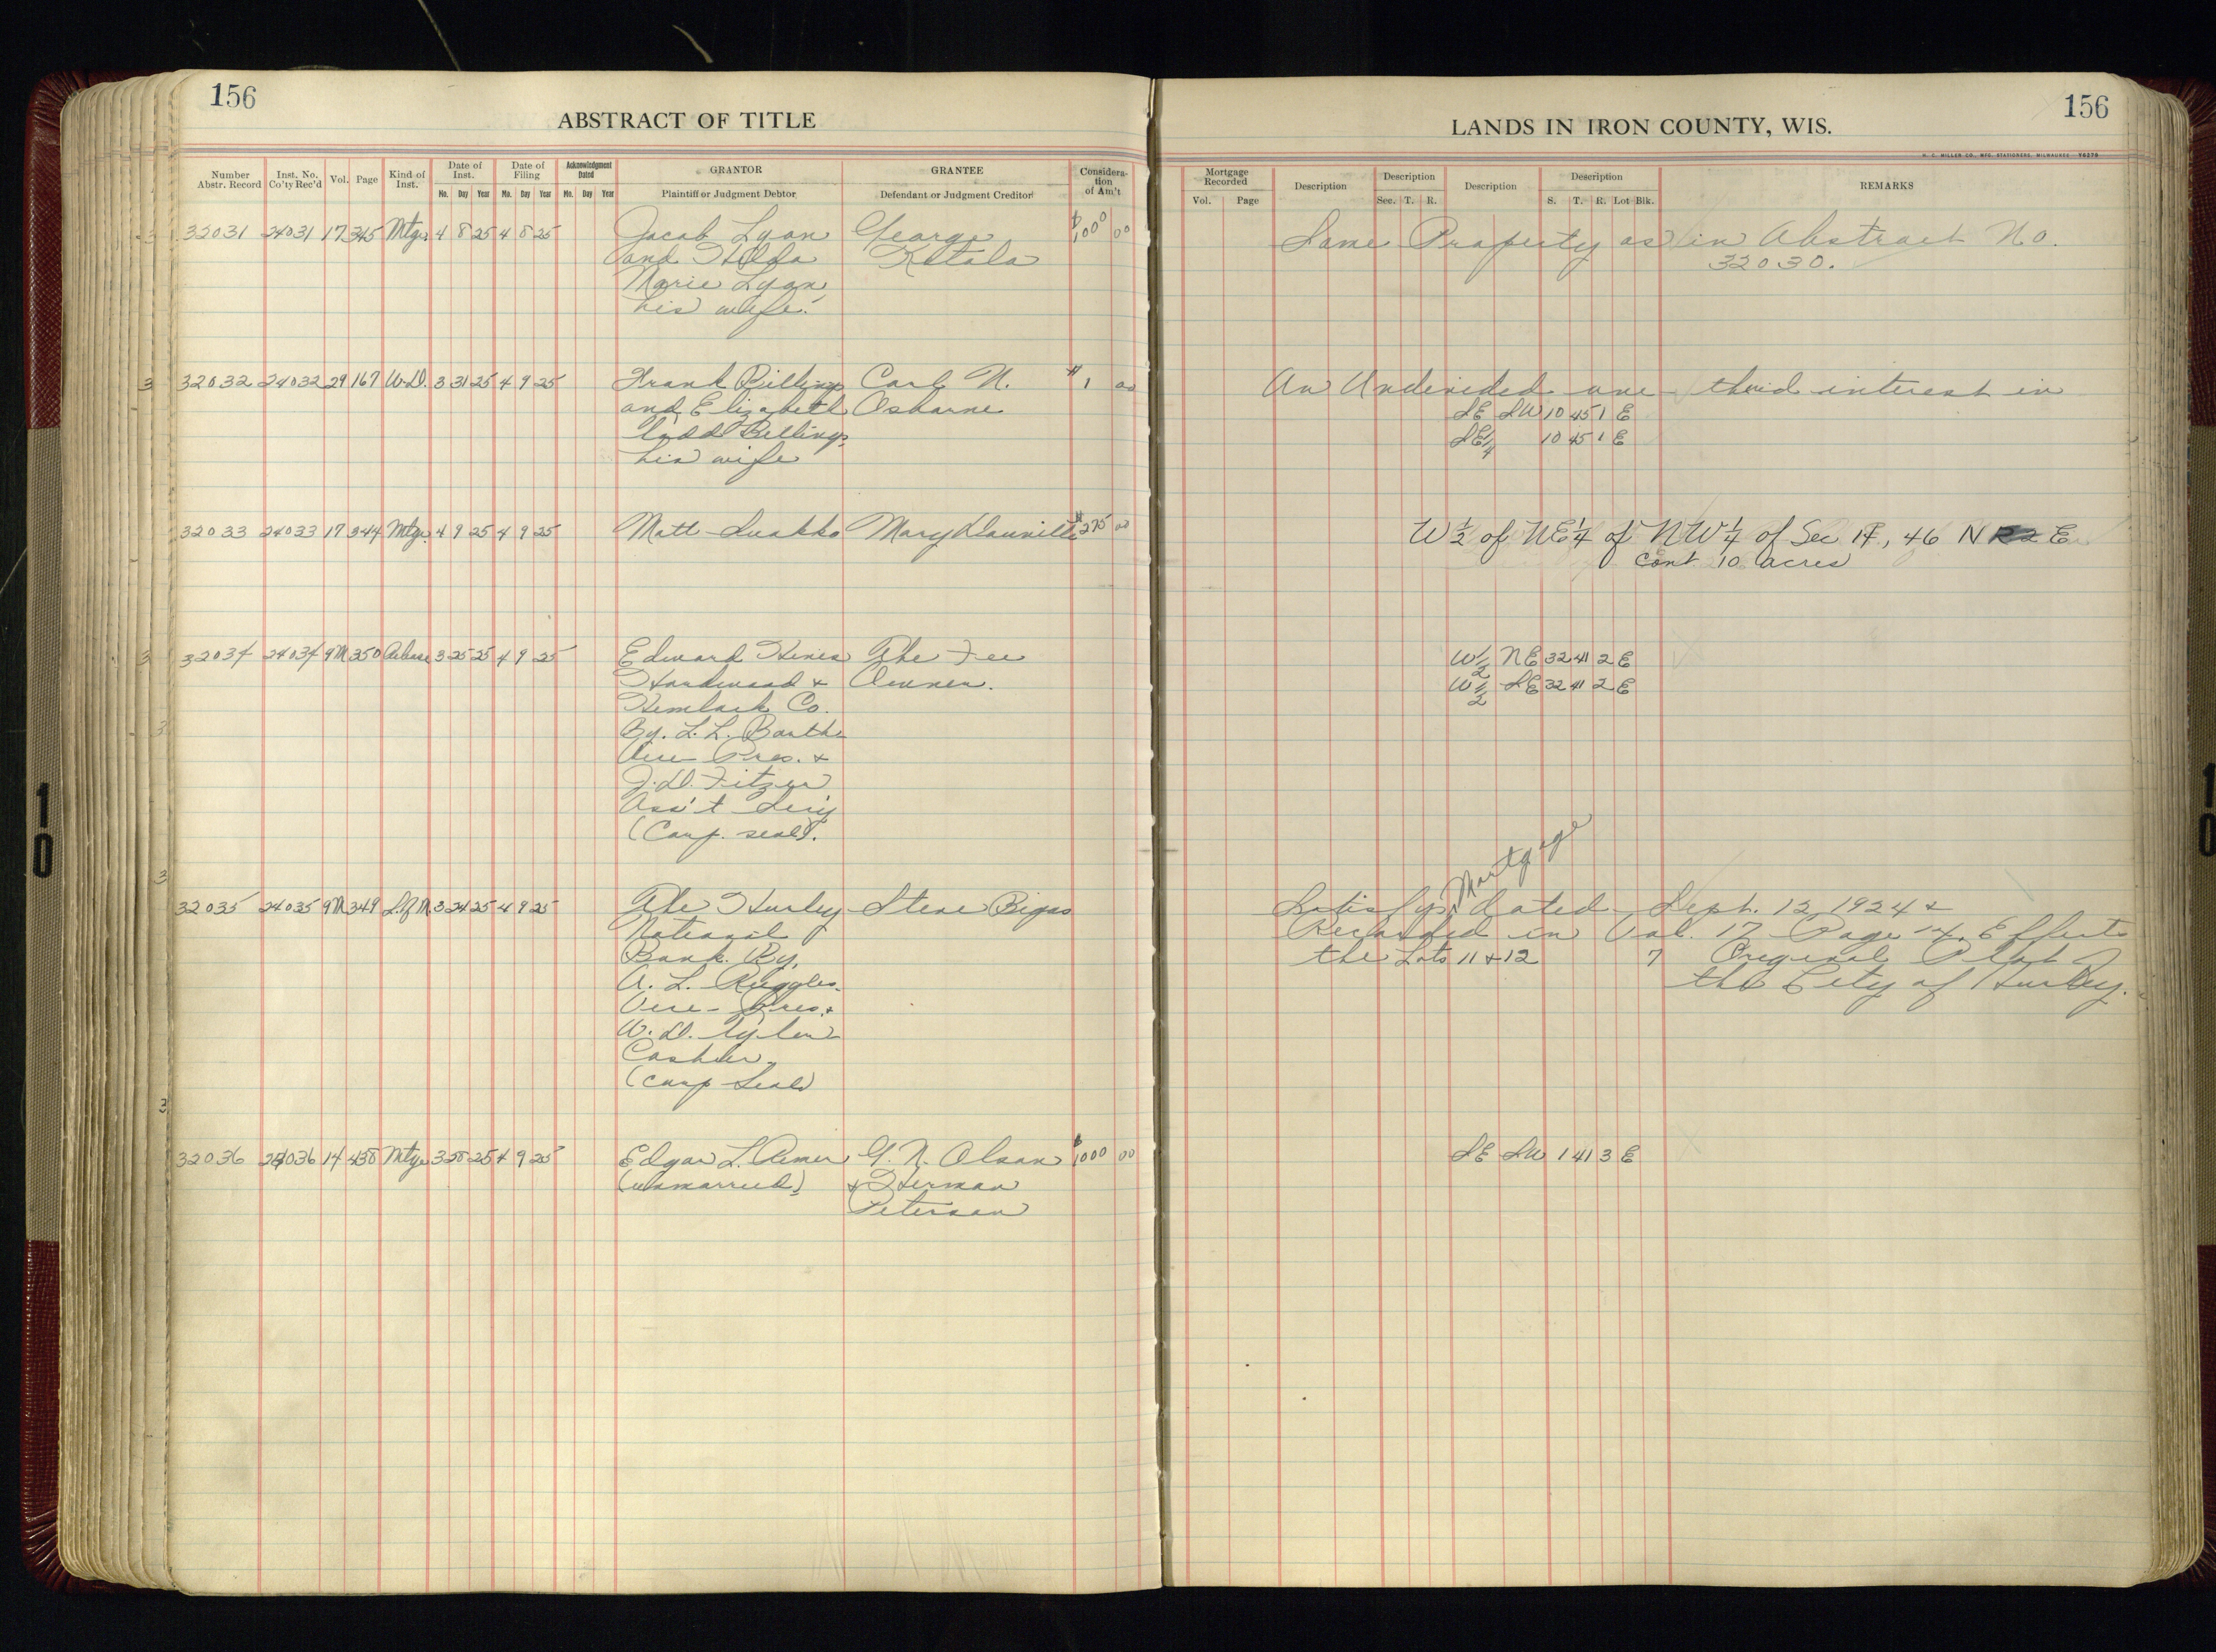 156
ABSTRACT OF TITLE
Number Abstr. Record Inst. No. Co'ty Rec'd Vol. Page Kind of Inst. Date of Inst. Mo. Day Year Date of Filing Mo. Day Year Acknowledgment Dated Mo. Day Year GRANTOR Plaintiff or Judgment Debtor GRANTEE Defendant or Judgment Creditor Consideration of Am't
32031 24031 17 345 Mtge. 4 8 25 4 8 25 Jacob Lyon George $100 00
and Hilda Ketola
Marie Lyon,
his wife.
32032 24032 29 167 W.D. 3 31 25 4 9 25 Frank Billings Carl N. $1 00
and Elizabeth Osborne
Todd Billings,
his wife
32033 24033 17 344 Mtge. 4 9 25 4 9 25 Matt Luakko Mary Dauville $275 00
32034 24034 9M 350 Release 3 25 25 4 9 25 Edward Hines The Fee
Hardwood & Owner.
Hemlock Co.
By. L. L. Barth
Vice Pres. &
J. D. Fitzer
Ass't Sec'y
(Corp. seal).
32035 24035 9M 349 S.of M. 3 24 25 4 9 25 The Hurley Steve Bigas
National
Bank. By,
A. L. Ruggles.
Vice-Pres. &
W. D. Tyler
Cashier.
(Corp Seal)
32036 24036 14 438 Mtge 3 28 25 4 9 25 Edgar L. G. N. Olson $1000 00
(unmarried) & Herman
Peterson
156
LANDS IN IRON COUNTY, WIS.
H. C. MILLER CO., MFG. STATIONERS, MILWAUKEE
Mortgage Recorded Vol. Page Description Description Sec. T. R. Description Description S. T. R. Lot Blk. REMARKS
Same Property as in Abstract No.
32030.
An Undivided one third interest in
SE SW 10 45 1 E
SE1/4 10 45 1 E
W 1/2 of NE 1/4 of NW 1/4 of Sec 46 N E
Cont. 10 acres
W 1/2 NE 32 41 2 E
W 1/2 SE 32 41 2 E
Mortgage
Satisfys dated Sept. 12 1924 &
Recorded in Vol. 17 Page 14. Effects
the Lots 11 & 12 7 Original Plat of
the City of Hurley.
SE SW 1 41 3 E